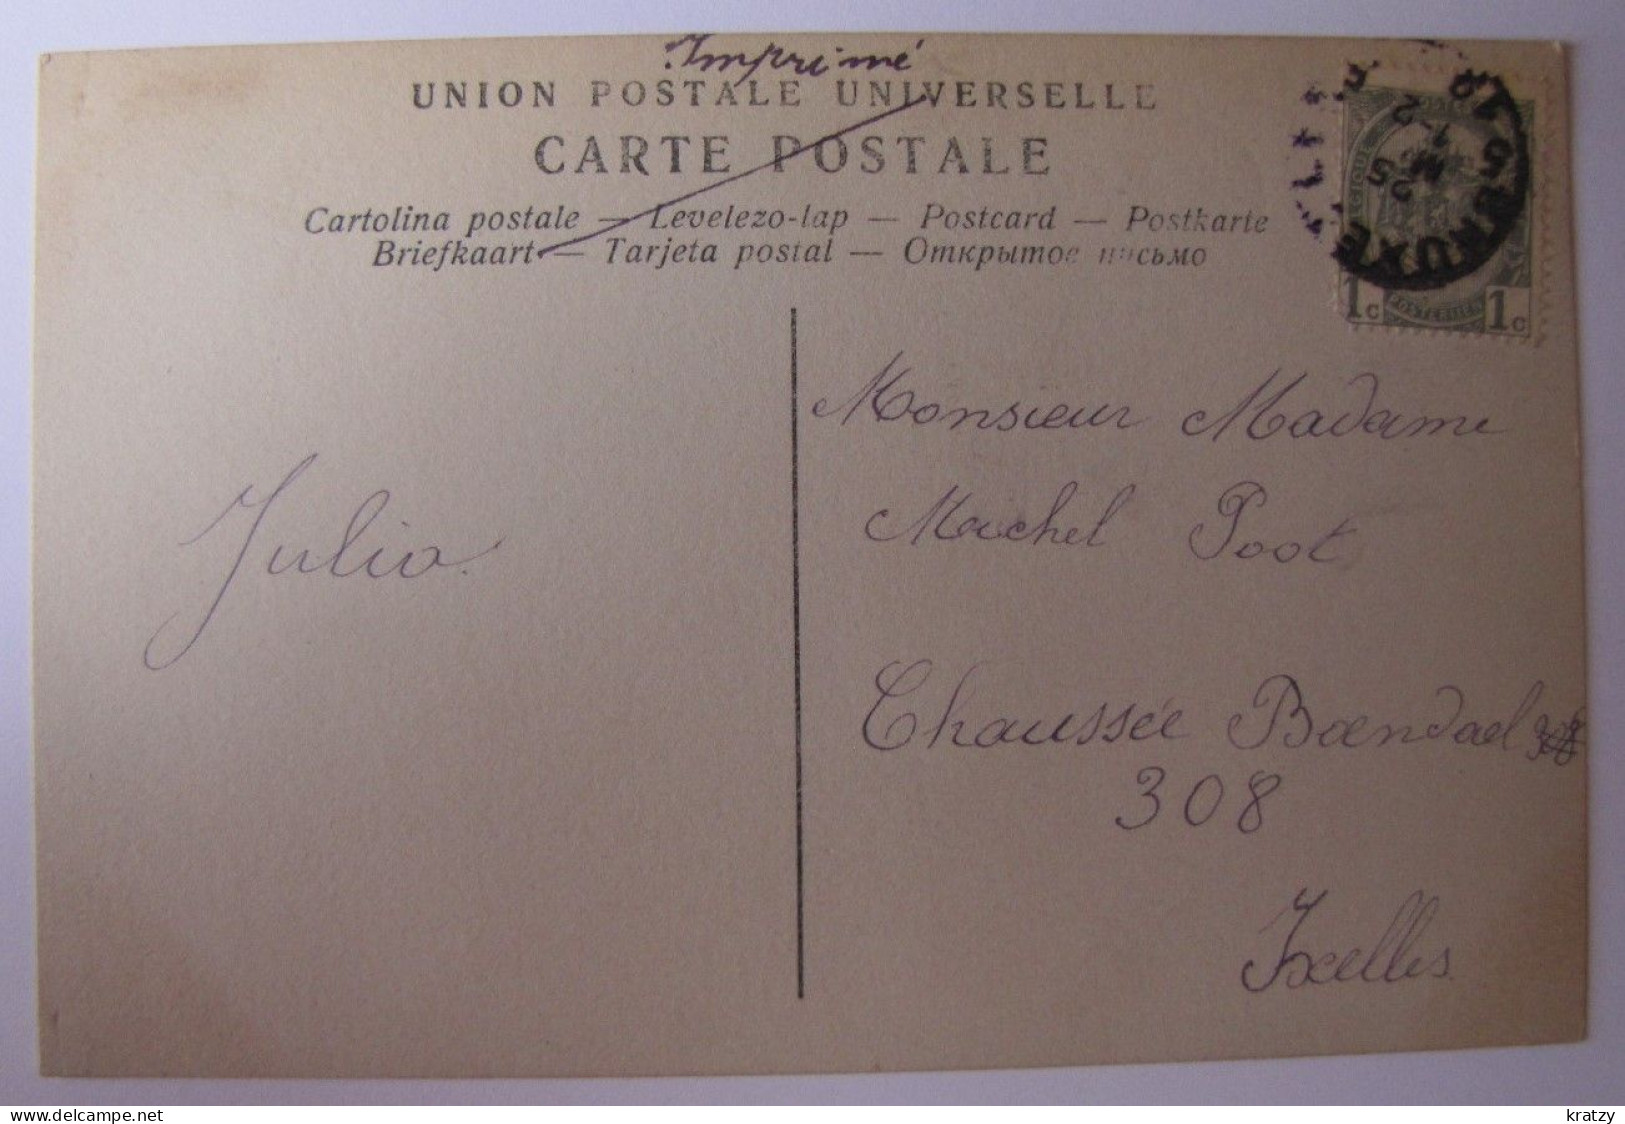 Imprimé
UNION POSTALE UNIVERSELLE
CARTE POSTALE
Cartolina postale — Levelezo-lap — Postcard — Postkarte
Briefkaart — Tarjeta postal — Открытое письмо
1c POSTERIJEN 1c
Monsieur Madame
Machel Poot
Julia.
Chaussée Boendael 308
308
Ixelles
delcampe.net
kratzy